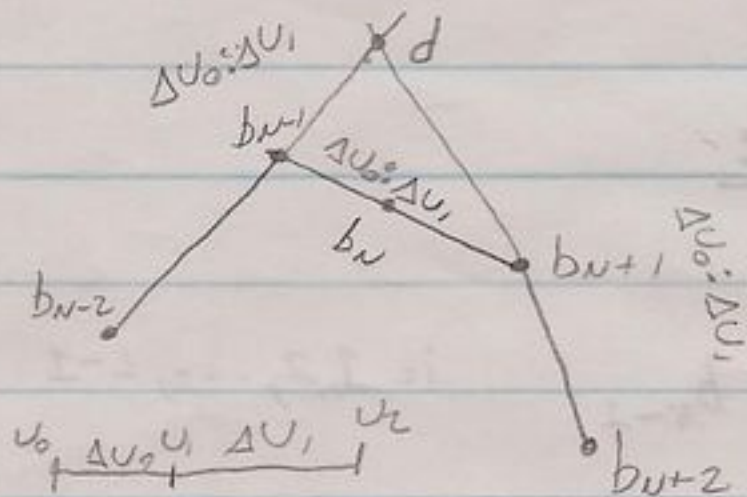 d
ΔU₀:ΔU₁
b_{N-1}
ΔU₀:ΔU₁
b_N
b_{N+1}
ΔU₀:ΔU₁
b_{N-2}
U₀ ΔU₀ U₁ ΔU₁ U₂
b_{N+2}